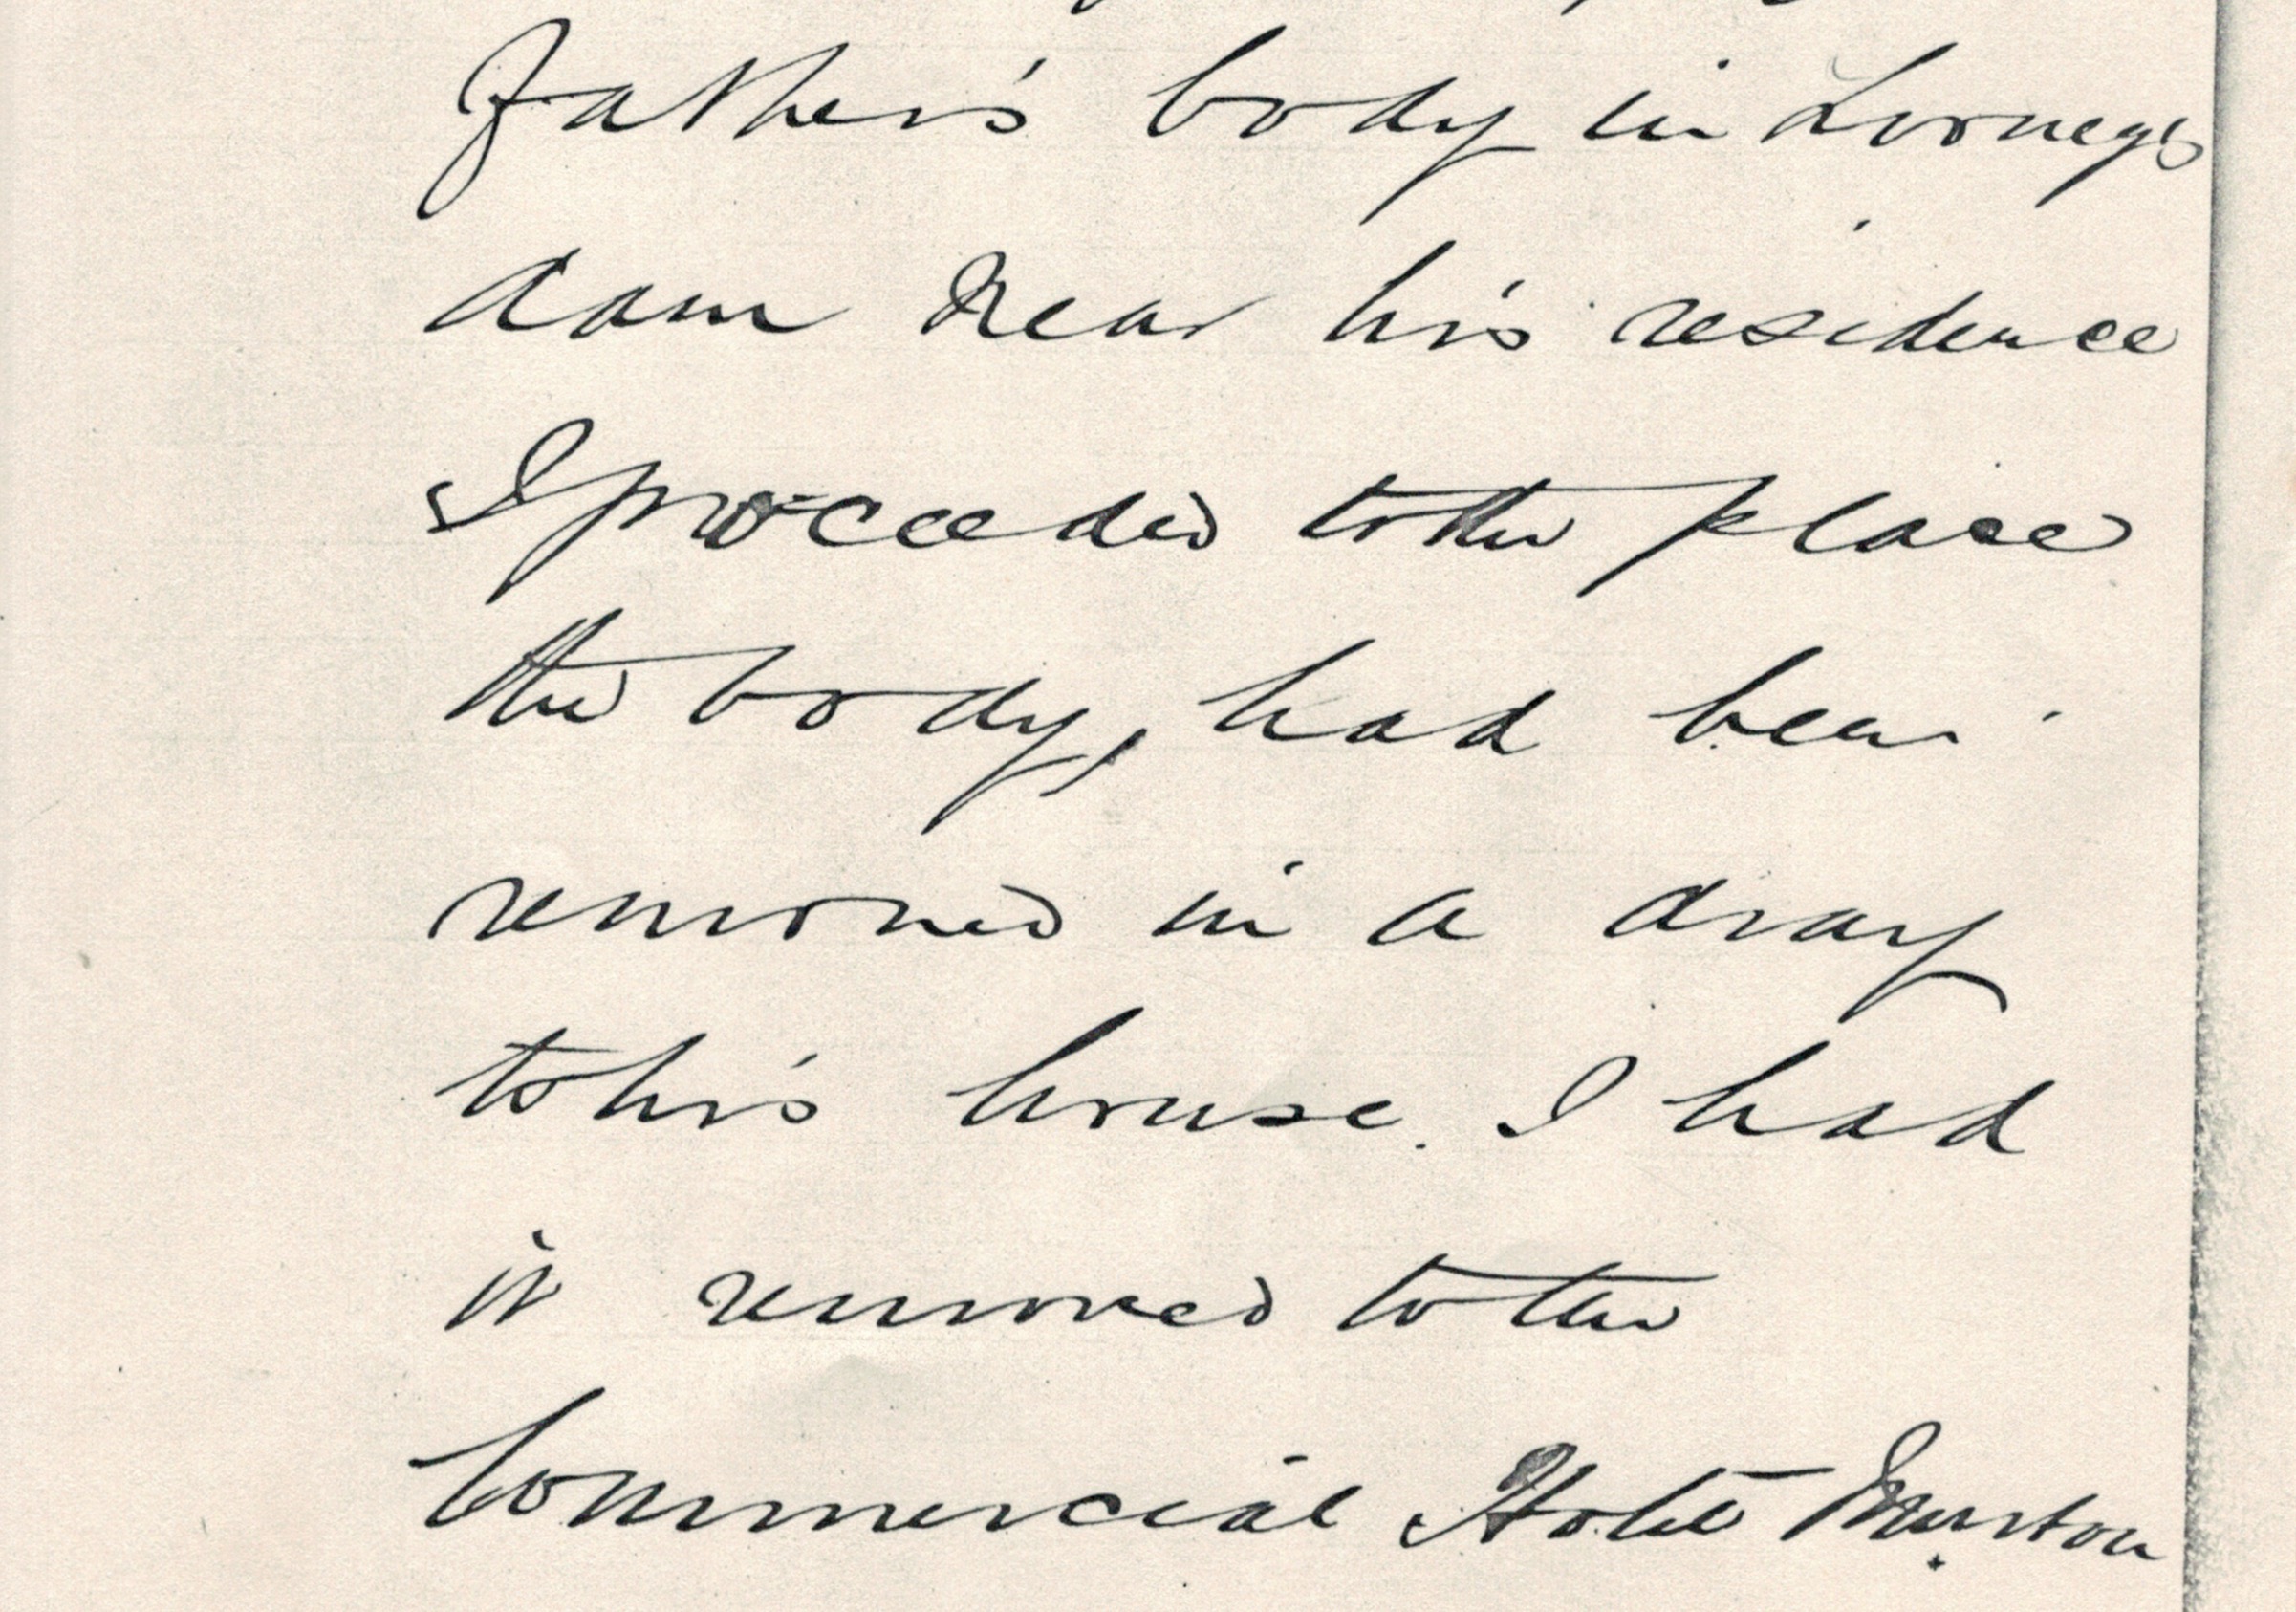 Father's body in Looney's
dam near his residence
I proceeded to the place
the body, had been
removed in a dray
to his house. I had
it removed to the
Commercial Hotel